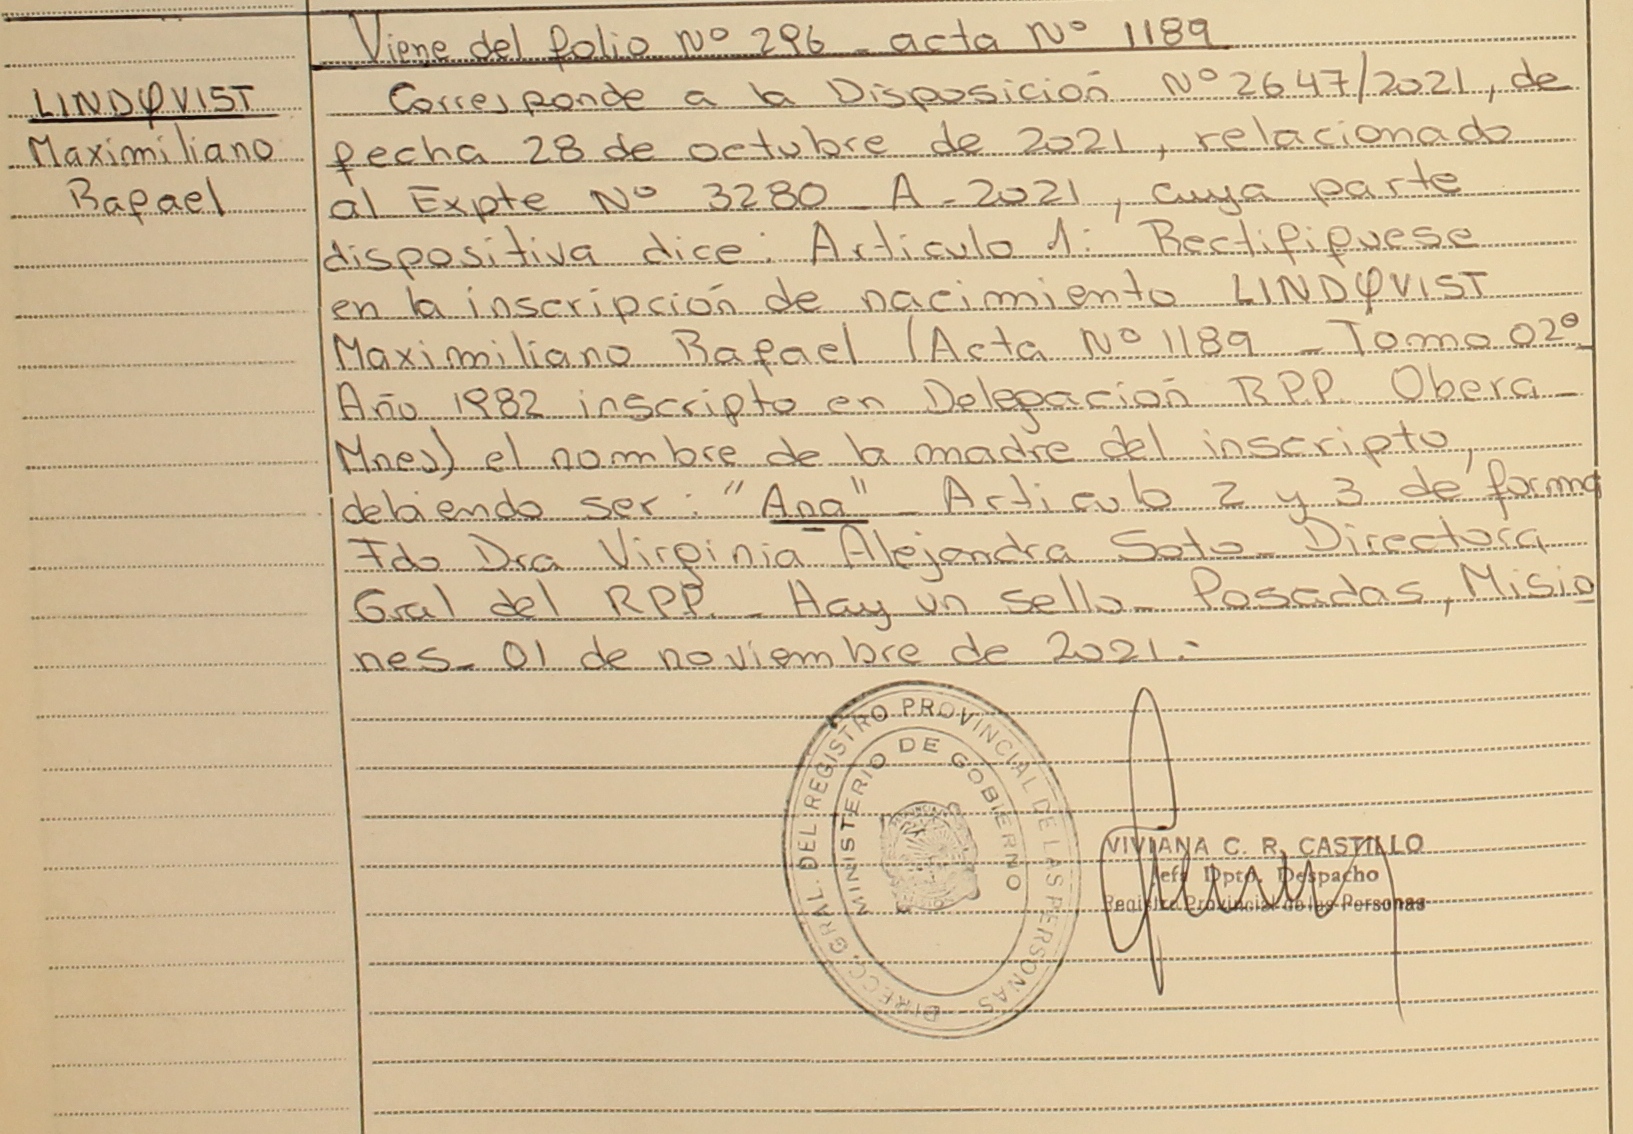 Viene del folio Nº 296 - acta Nº 1189
LINDQVIST
Maximiliano
Rafael
Corresponde a la Disposición Nº 2647/2021, de
fecha 28 de octubre de 2021, relacionado
al Expte Nº 3280 - A - 2021, cuya parte
dispositiva dice: Artículo 1: Rectifiquese
en la inscripción de nacimiento LINDQVIST
Maximiliano Rafael (Acta Nº 1189 - Tomo 02º -
Año 1982 inscripto en Delegación RPP. Obera -
Mnes) el nombre de la madre del inscripto,
debiendo ser: "Ana" - Articulo 2 y 3 de forma
Fdo Dra Virginia Alejandra Soto - Directora
Gral del RPP. - Hay un sello - Posadas, Misio
nes - 01 de noviembre de 2021.-
DIRECC. GRAL. DEL REGISTRO PROVINCIAL DE LAS PERSONAS
MINISTERIO DE GOBIERNO
VIVIANA C. R. CASTILLO
Jefe Dpto. Despacho
Registro Provincial de las Personas